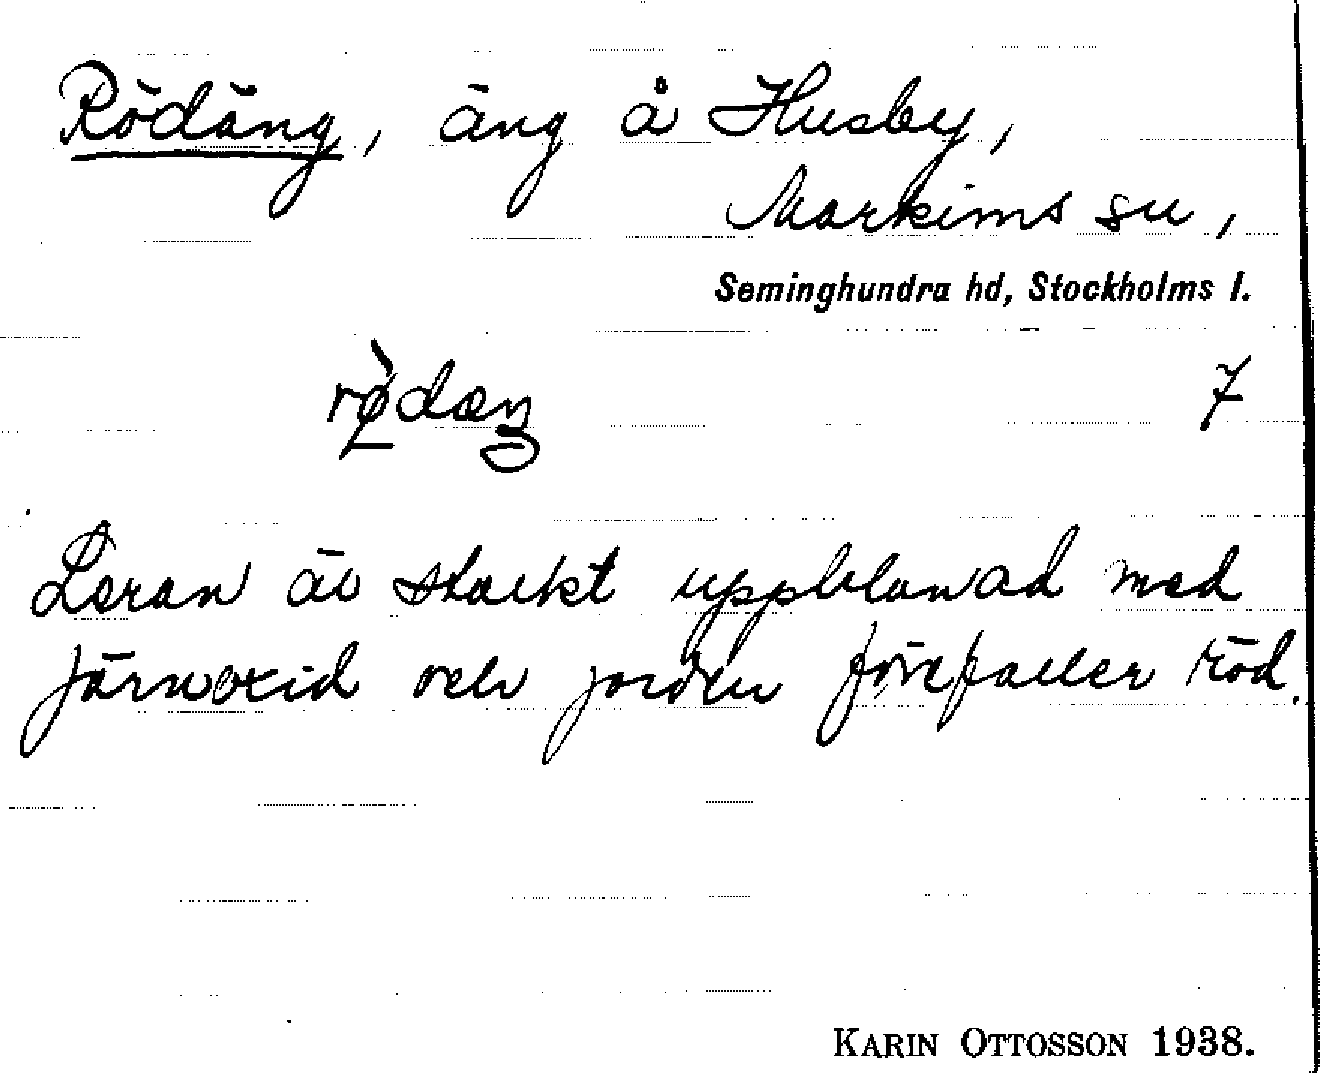 Rödäng, äng å Husby,
Markims sn,
Seminghundra hd, Stockholms l.
rø̀dæŋ 7
Leran är starkt uppblandad med
järnoxid och jorden förefaller röd.
KARIN OTTOSSON 1938.